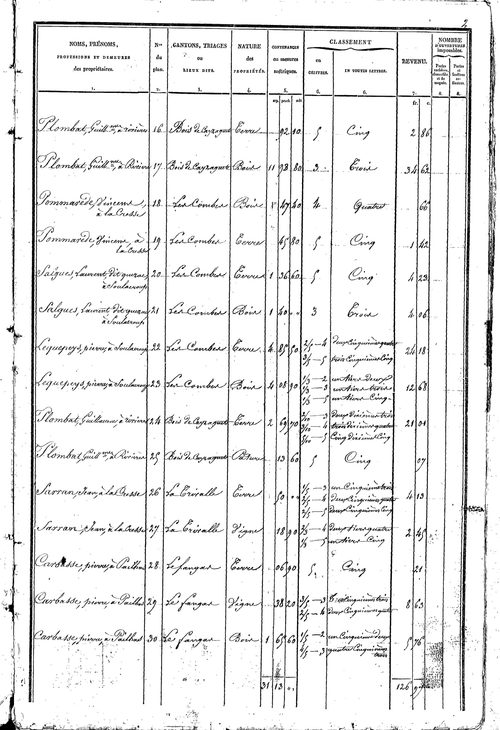 2
NOMS, PRÉNOMS, PROFESSIONS ET DEMEURES des propriétaires. | Nos du plan. | CANTONS, TRIAGES ou LIEUX DITS. | NATURE des PROPRIÉTÉS. | CONTENANCES en mesures métriques. | CLASSEMENT en CHIFFRES. | en TOUTES LETTRES. | REVENU. | NOMBRE D'OUVERTURES imposables.
1. 2. 3. 4. 5. 6. 6. 7. 8. 8.
fr. c.
Plombat, Guill.me, à rivière 16 Bois de Cayraguet Terre 92 10 5 Cinq 2 86
Plombat, Guill.me, à Rivière 17 Bois de Cayraguet Bois 11 98 80 3 Trois 34 62
Pommarède, Vincent, à la Cresse 18 Les Combes Bois 47 40 4 Quatre 66
Pommarède, Vincent, à la Cresse 19 Les Combes Terre 45 80 5 Cinq 1 42
Salgues, Laurent, dit 20 Les Combes Terre 1 36 60 5 Cinq 4 23
Salgues, Laurent, dit 21 Les Combes Bois 1 40 3 Trois 4 06
pierre, à 22 Les Combes Terre 4 85 50 2/5 — 4 deux Cinquièmes quatre 24 18
3/5 — 5 trois Cinquièmes Cinq
pierre, à 23 Les Combes Bois 4 08 90 1/3 — 2 un tiers deux 12 68
1/3 — 3 un tiers trois
1/3 — 5 un tiers Cinq
Plombat, Guillaume, à rivière 24 Bois de Cayraguet Terre 2 69 70 2/10 — 3 deux dixièmes trois 21 01
3/10 — 4 trois dixièmes quatre
5/10 — 5 Cinq dixièmes Cinq
Plombat, Guill.me, à Rivière 25 Bois de Cayraguet Pature 13 60 5 Cinq 07
Sarran, Jean, à la Cresse 26 La Trivalle Terre 50 1/5 — 3 un Cinquième trois 4 13
2/5 — 4 deux Cinquièmes quatre
2/5 — 5 deux Cinquièmes Cinq
Sarran, Jean, à la Cresse 27 La Trivalle Vigne 18 90 2/3 — 4 deux tiers quatre 2 45
1/3 — 5 un tiers Cinq
Carbasse, pierre, à Pailhas 28 Le fangas Terre 06 90 5 Cinq 21
Carbasse, pierre, à Pailhas 29 Le fangas Vigne 38 20 3/5 — 3 Trois Cinquièmes trois 8 63
2/5 — 4 deux Cinquièmes quatre
Carbasse, pierre, à Pailhas 30 Le fangas Bois 1 65 60 1/5 — 2 un Cinquième deux 5 76
4/5 — 3 quatre Cinquièmes trois
31 13 126